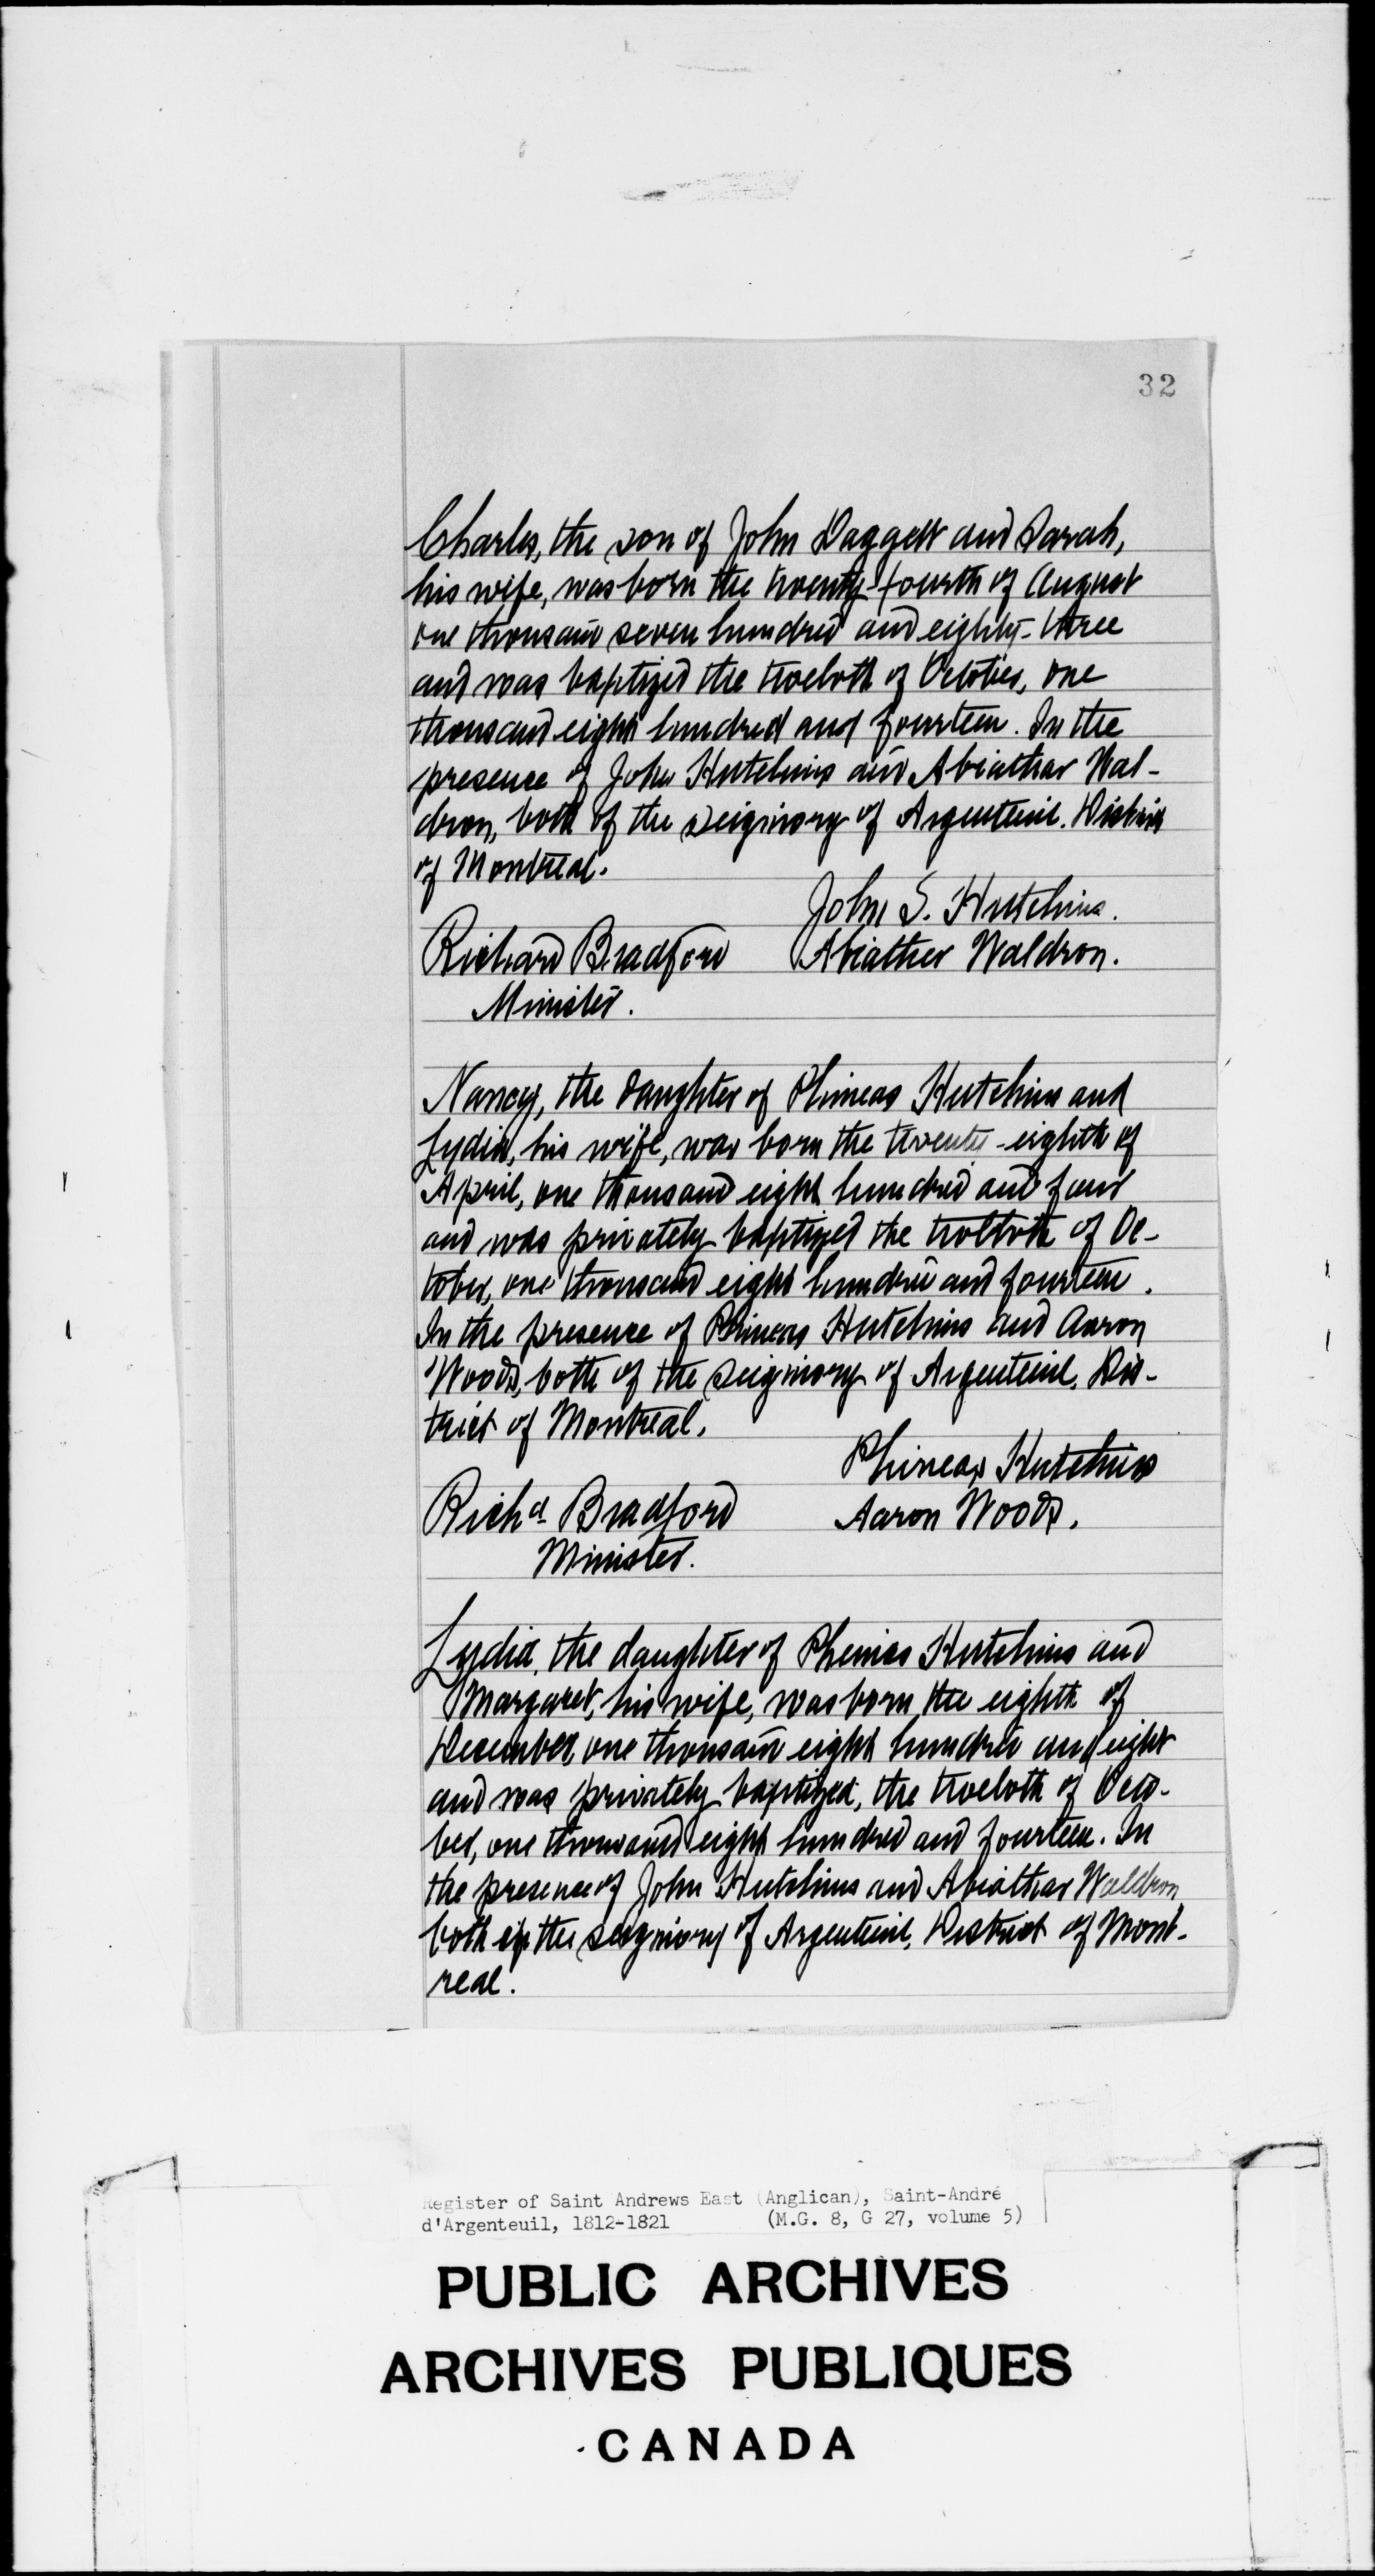 32
Charles, the son of John Daggett and Sarah,
his wife, was born the twenty-fourth of August
one thousand seven hundred and eighty-three
and was baptized the twelvth of October, one
thousand eight hundred and fourteen. In the
presence of John Hutchins and Abiathar Wal-
dron, both of the seigniory of Argenteuil. District
of Montreal.
John S. Hutchins.
Richard Bradford Abiather Waldron.
Minister.
Nancy, the daughter of Phineas Hutchins and
Lydia, his wife, was born the twenty-eighth of
April, one thousand eight hundred and four
and was privately baptized the twelvth of Oc-
tober, one thousand eight hundred and fourteen.
In the presence of Phineas Hutchins and Aaron
Woods, both of the seigniory of Argenteuil. Dis-
trict of Montreal.
Phineas Hutchins
Richd Bradford Aaron Woods.
Minister.
Lydia, the daughter of Phenias Hutchins and
Margaret, his wife, was born the eighth of
December one thousand eight hundred and eight
and was privately baptized, the twelvth of Octo-
ber, one thousand eight hundred and fourteen. In
the presence of John Hutchins and Abiathar Waldron
both of the seigniory of Argenteuil, District of Mont-
real.
Register of Saint Andrews East (Anglican), Saint-André
d'Argenteuil, 1812-1821 (M.G. 8, G 27, volume 5)
PUBLIC ARCHIVES
ARCHIVES PUBLIQUES
CANADA